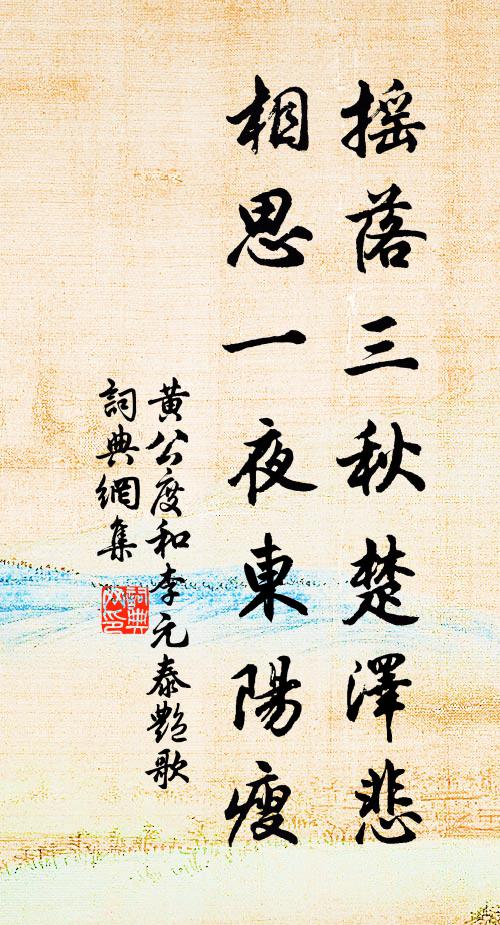 摇落三秋楚澤悲
相思一夜東陽瘦
黃公度和李元泰艷歌
詞典網集